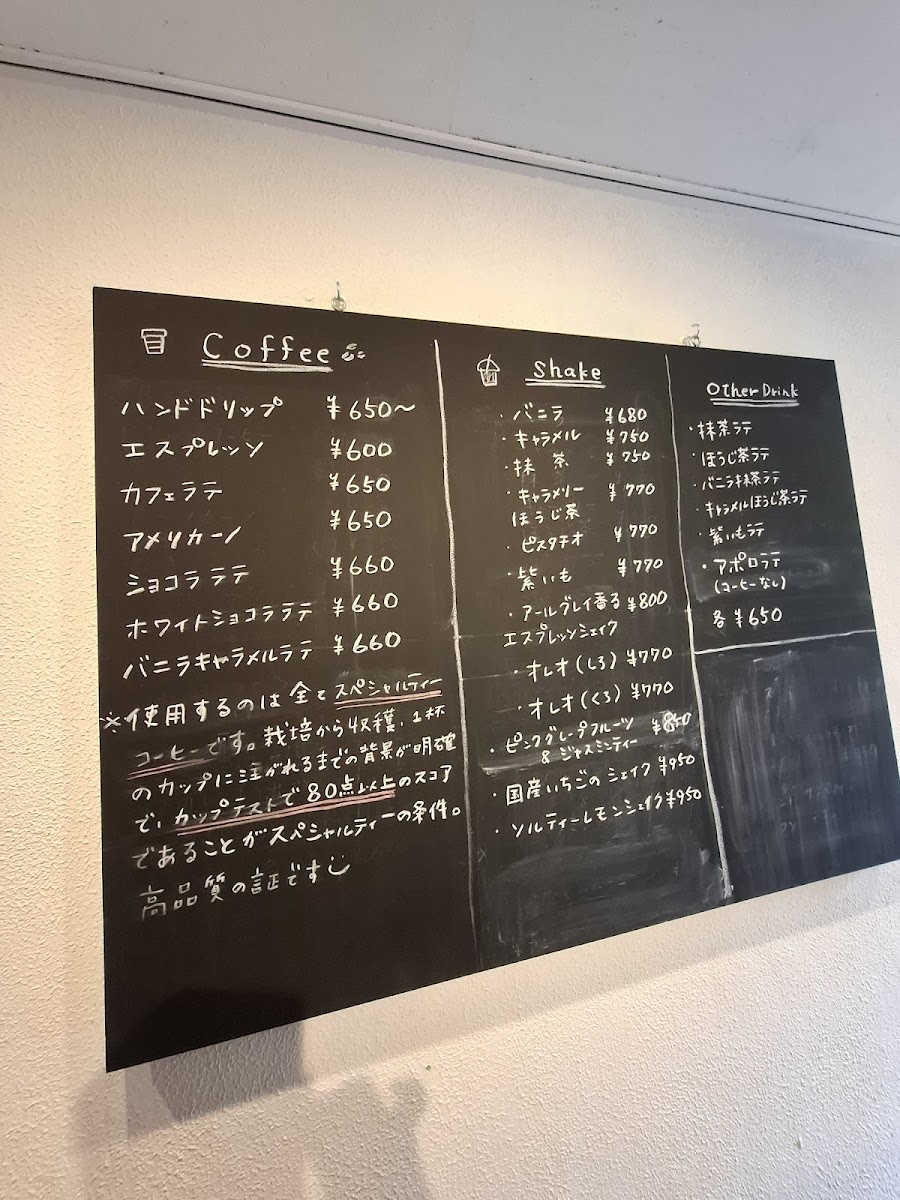 Coffee
ハンドドリップ ¥650〜
エスプレッソ ¥600
カフェラテ ¥650
アメリカーノ ¥650
ショコララテ ¥660
ホワイトショコララテ ¥660
バニラキャラメルラテ ¥660
※使用するのは全てスペシャルティー
コーヒーです。栽培から収穫、1杯
のカップに注がれるまでの背景が明確
で、カップテストで80点以上のスコア
であることがスペシャルティーの条件。
高品質の証です
Shake
・バニラ ¥680
・キャラメル ¥750
・抹茶 ¥750
・キャラメリー ¥770
ほうじ茶
・ピスタチオ ¥770
・紫いも ¥770
・アールグレイ香る ¥800
エスプレッソシェイク
・オレオ(しろ) ¥770
・オレオ(くろ) ¥770
・ピンクグレープフルーツ ¥850
& ジャスミンティー
・国産いちごの シェイク ¥950
・ソルティーレモンシェイク ¥950
Other Drink
・抹茶ラテ
・ほうじ茶ラテ
・バニラ抹茶ラテ
・キャラメルほうじ茶ラテ
・紫いもラテ
・アポロラテ
(コーヒーなし)
各 ¥650